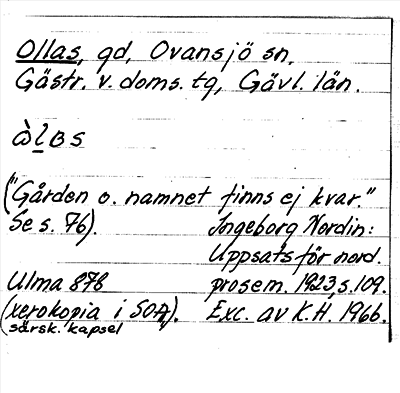 Ollas, gd, Ovansjö sn,
Gästr. v. doms. tg, Gävl. län.
("Gården o. namnet finns ej kvar."
Se s. 76).
Ingeborg Nordin:
Uppsats för nord.
prosem. 1923, s. 109.
Exc. av K.H. 1966.
Ulma 878
(xerokopia i SOA).
särsk. kapsel